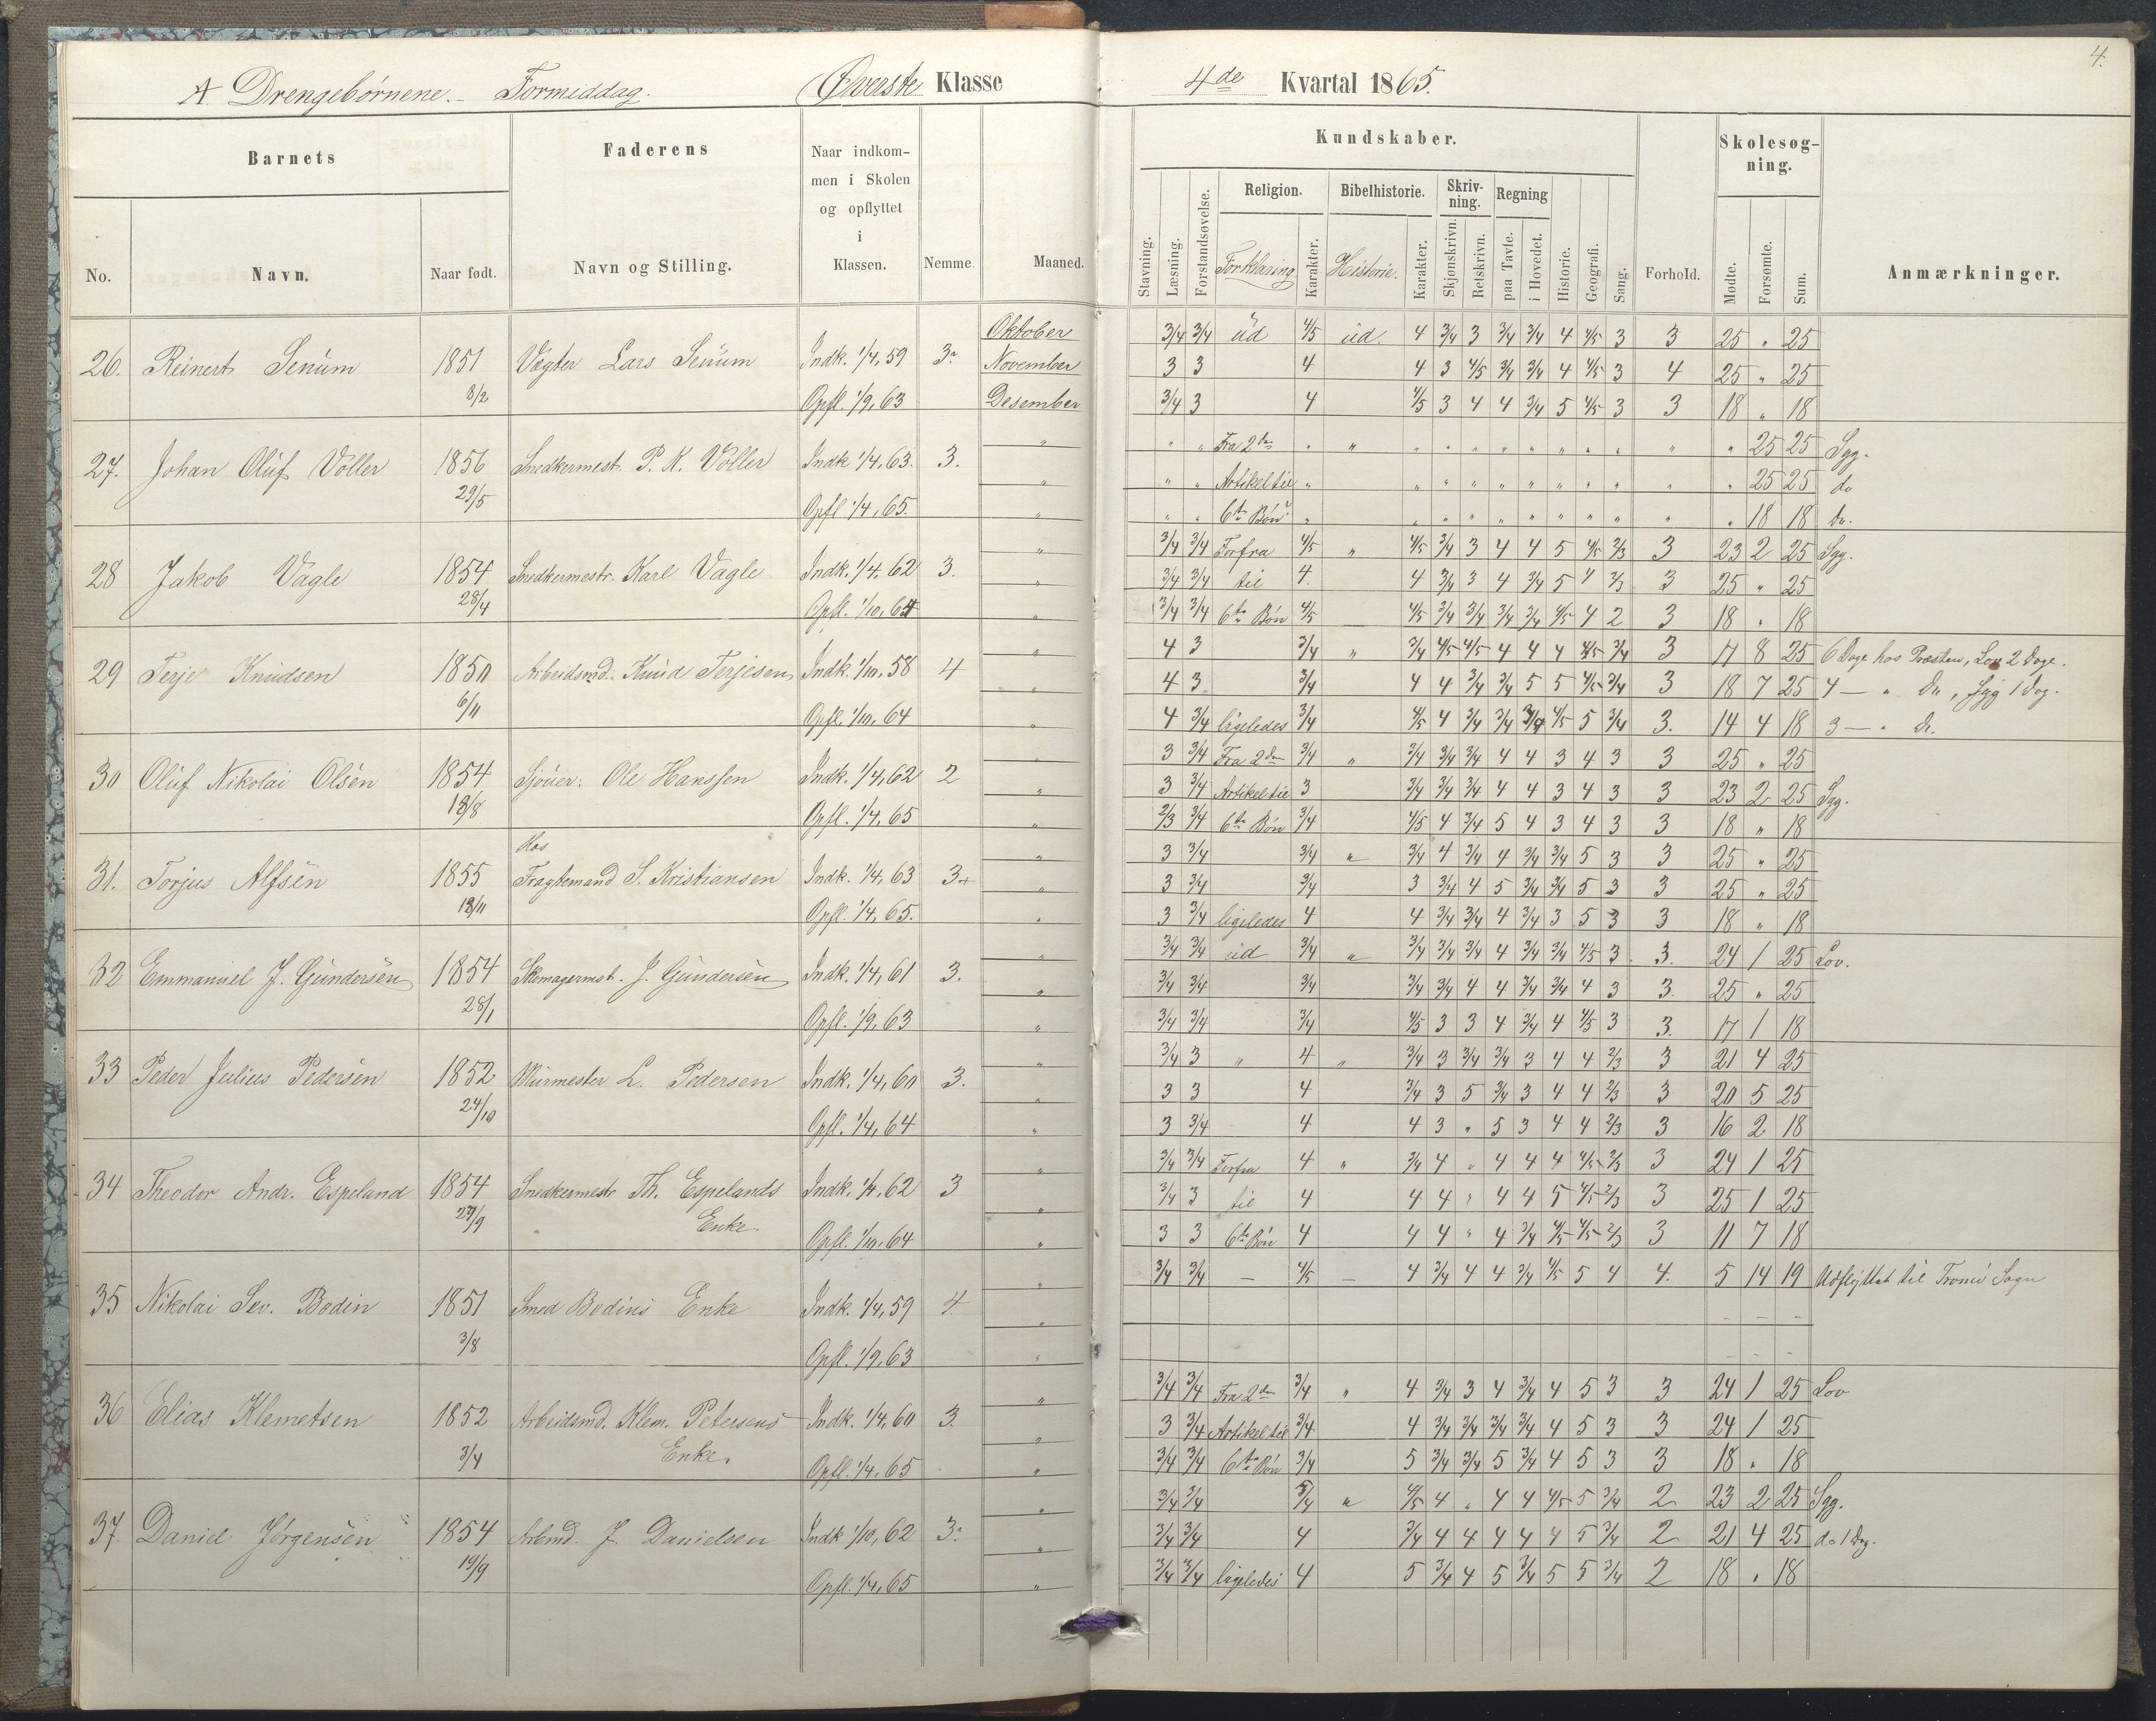 4.
A Drengebørnene. Formiddag. Øverste Klasse 4de Kvartal 1865.
Barnets Faderens Naar indkommen i Skolen og opflyttet i Klassen. Nemme. Maaned. Kundskaber. Forhold. Skolesøgning. Anmærkninger.
No. Navn. Naar født. Navn og Stilling. Stavning. Læsning. Forstandsøvelse. Religion. Forklaring Karakter. Bibelhistorie. Historie. Karakter. Skrivning. Skjønskrivn. Retskrivn. Regning paa Tavle. i Hovedet. Historie. Geografi. Sang. Mødte. Forsømte. Sum.
Oktober 3/4 3/4 ud 4/5 ud. 4 3/4 3 3/4 3/4 4 4/5 3 3 25 " 25
26. Reinert Senum 1851 Vægter Lars Senum Indk. 1/4, 59 3. November 3 3 4 4 3 4/5 3/4 3/4 4 4/5 3 4 25 " 25
3/2 Opfl. 1/9, 63 Desember 3/4 3 4 4/5 3 4 4 3/4 5 4/5 3 3 18 " 18
" " " Fra 2den " " " " " " " " " " " " " 25 25 Syg.
27. Johan Oluf Voller 1856 Snedkermest. P. K. Voller Indk 1/4, 63. 3. " " " Artikel til " " " " " " " " " " " 25 25 do
29/5 Opfl 1/4, 65. " " " 6te Bøn " " " " " " " " " " " 18 18 do.
" 3/4 3/4 Forfra 4/5 " 4/5 3/4 3 4 4 5 4/5 2/3 3 23 2 25 Syg.
28 Jakob Vagle 1854 Snedkermestr. Karl Vagle Indk. 1/4, 62 3. " 3/4 3/4 til 4. 4 3/4 3 4 3/4 5 4 2/3 3 25 " 25
28/4 Opfl. 1/10, 64 " 3/4 3/4 6te Bøn 4/5 4/5 3/4 3/4 3/4 3/4 4/5 4 2 3 18 " 18
" 4 3 3/4 " 3/4 4/5 4/5 4 4 4 4/5 3/4 3 17 8 25 6 Dage hos Præsten, Lov 2 Dage.
29 Terje Knudsen 1850 Arbeidsmd. Knud Terjesen Indk. 1/10. 58 4 " 4 3 3/4 4 4 3/4 3/4 5 5 4/5 3/4 3 18 7 25 4 — " Do, Syg 1 Dag.
6/11 Opfl. 1/10, 64 " 4 3/4 ligeledes 3/4 4/5 4 3/4 3/4 3/4 4/5 5 3/4 3. 14 4 18 3 — " Do.
" 3 3/4 Fra 2den 3/4 " 3/4 3/4 3/4 4 4 3 4 3 3 25 " 25
30 Oluf Nikolai Olsen 1854 Sjouer. Ole Hanssen Indk. 1/4, 62 2 " 3 3/4 Artikel til 3 3/4 3/4 3/4 4 4 3 4 3 3 23 2 25 Syg.
18/8 Opfl. 1/4, 65 " 2/3 3/4 6te Bøn 3/4 4/5 4 3/4 5 4 3 4 3 3 18 " 18
Hos " 3 3/4 3/4 " 3/4 4 3/4 4 3/4 3/4 5 3 3 25 " 25
31. Torjus Alfsen 1855 Fragtemand S. Kristiansen Indk. 1/4, 63 3+ " 3 3/4 3/4 3 3/4 4 5 3/4 3/4 5 3 3 25 " 25
18/11 Opfl. 1/4, 65. " 3 3/4 ligeledes 4 4 3/4 3/4 4 3/4 3 5 3 3 18 " 18
" 3/4 3/4 ud 3/4 " 3/4 3/4 3/4 4 3/4 3/4 4/5 3 3. 24 1 25 Lov.
32 Emmanuel J. Gundersen 1854 Skomagermst. J. Gundersen Indk. 1/4, 61 3. " 3/4 3/4 3/4 3/4 3/4 4 4 3/4 3/4 4 3 3. 25 " 25
28/1 Opfl. 1/9, 63 " 3/4 3/4 3/4 4/5 3 3 4 3/4 4 4/5 3 3. 17 1 18
" 3/4 3 " 4 " 3/4 3 3/4 3/4 3 4 4 2/3 3 21 4 25
33 Peder Julius Pedersen 1852 Murmester L. Pedersen Indk. 1/4, 60 3. " 3 3 4 3/4 3 5 3/4 3 4 4 2/3 3 20 5 25
24/10 Opfl. 1/4, 64 " 3 3/4 4 4 3 " 5 3 4 4 2/3 3 16 2 18
" 3/4 3/4 Forfra 4 " 3/4 4 " 4 4 4 4/5 2/3 3 24 1 25
34 Theodor Andr. Espeland 1854 Snedkermestr Th. Espelands Indk. 1/4, 62 3 " 3/4 3 til 4 4 4 " 4 4 5 4/5 2/3 3 25 1 25
29/9 Enke. Opfl. 1/10. 64 " 3 3 6te Bøn 4 4 4 " 4 3/4 4/5 4/5 2/3 3 11 7 18
" 3/4 3/4 — 4/5 — 4 3/4 4 4 3/4 4/5 5 4 4. 5 14 19 Udflyttet til Tromø Sogn
35 Nikolai Sev. Bodin 1851 Smed Bodins Enke Indk. 1/4, 59 4. " - - -
3/8 Opfl. 1/9, 63 " - - -
" 3/4 3/4 Fra 2den 3/4 " 4 3/4 3 4 3/4 4 5 3 3 24 1 25 Lov
36 Elias Klemetsen 1852 Arbeidsmd. Klem. Petersens Indk. 1/4, 60 3. " 3 3/4 Artikel til 3/4 4 3/4 3/4 3/4 3/4 4 5 3 3 24 1 25
3/4 Enke. Opfl. 1/4, 65 " 3/4 3/4 6te Bøn 3/4 5 3/4 3/4 5 3/4 4 5 3 3 18 " 18
" 3/4 3/4 3/4 " 4/5 4 " 4 4 4/5 5 3/4 2 23 2 25 Syg.
37. Daniel Jørgensen 1854 Arbmd. J. Danielsen Indk 1/10, 62 3. " 3/4 3/4 4 3/4 4 4 4 4 4 5 3/4 2 21 4 25 do 1 Dag.
19/9 Opfl. 1/4, 65 " 3/4 3/4 ligeledes 4 5 3/4 4 5 3/4 5 5 3/4 2 18 " 18